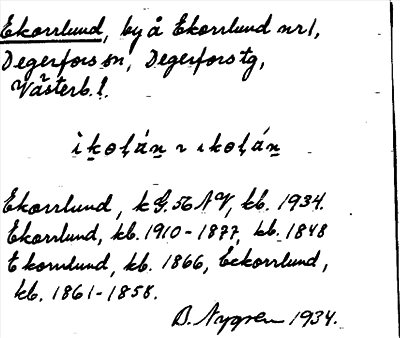 Ekorrlund, by å Ekorrlund nr 1,
Degerfors sn, Degerfors tg,
Västerb. l.
Ekorrlund, k G. 56 NV, kb. 1934.
Ekorrlund, kb. 1910-1877, kb. 1848
Ekornlund, kb. 1866, Eckorrlund,
kb. 1861-1858.
B. Nygren 1934.